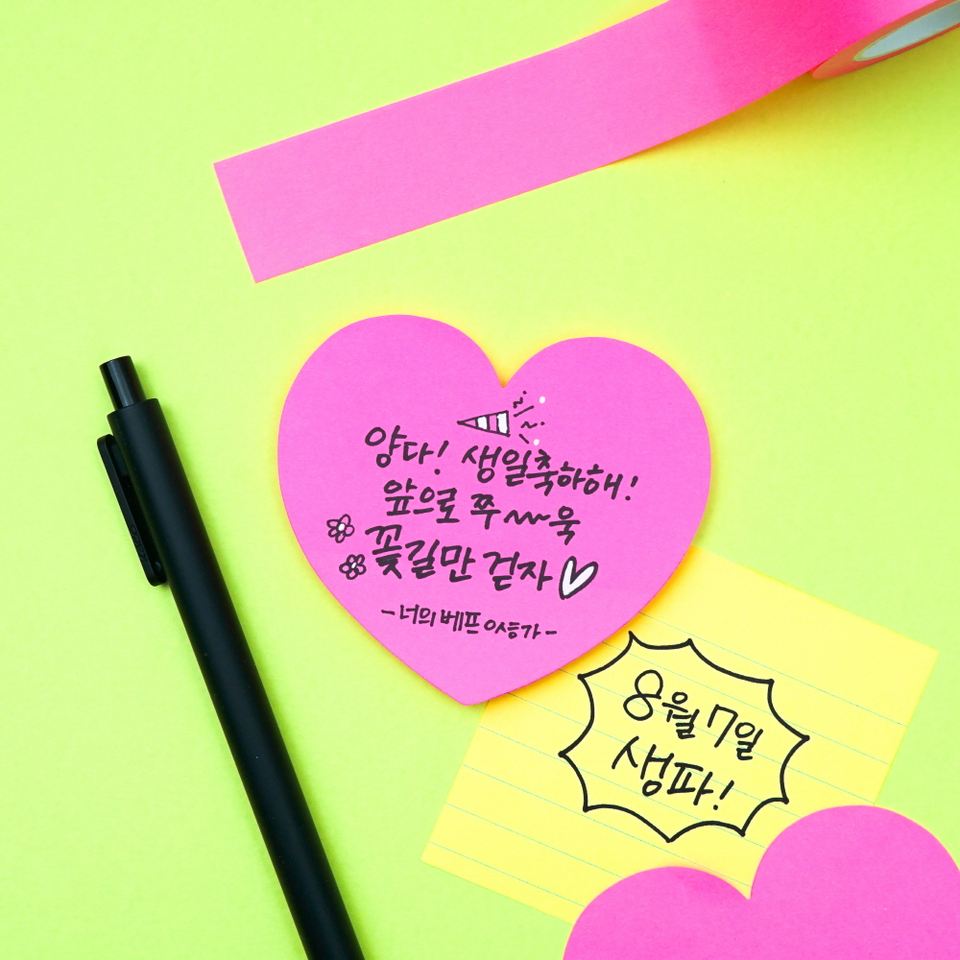 양다! 생일축하해!
앞으로 쭈~욱
꽃길만 걷자
-너의 베프 승가-
8월 7일
생파!